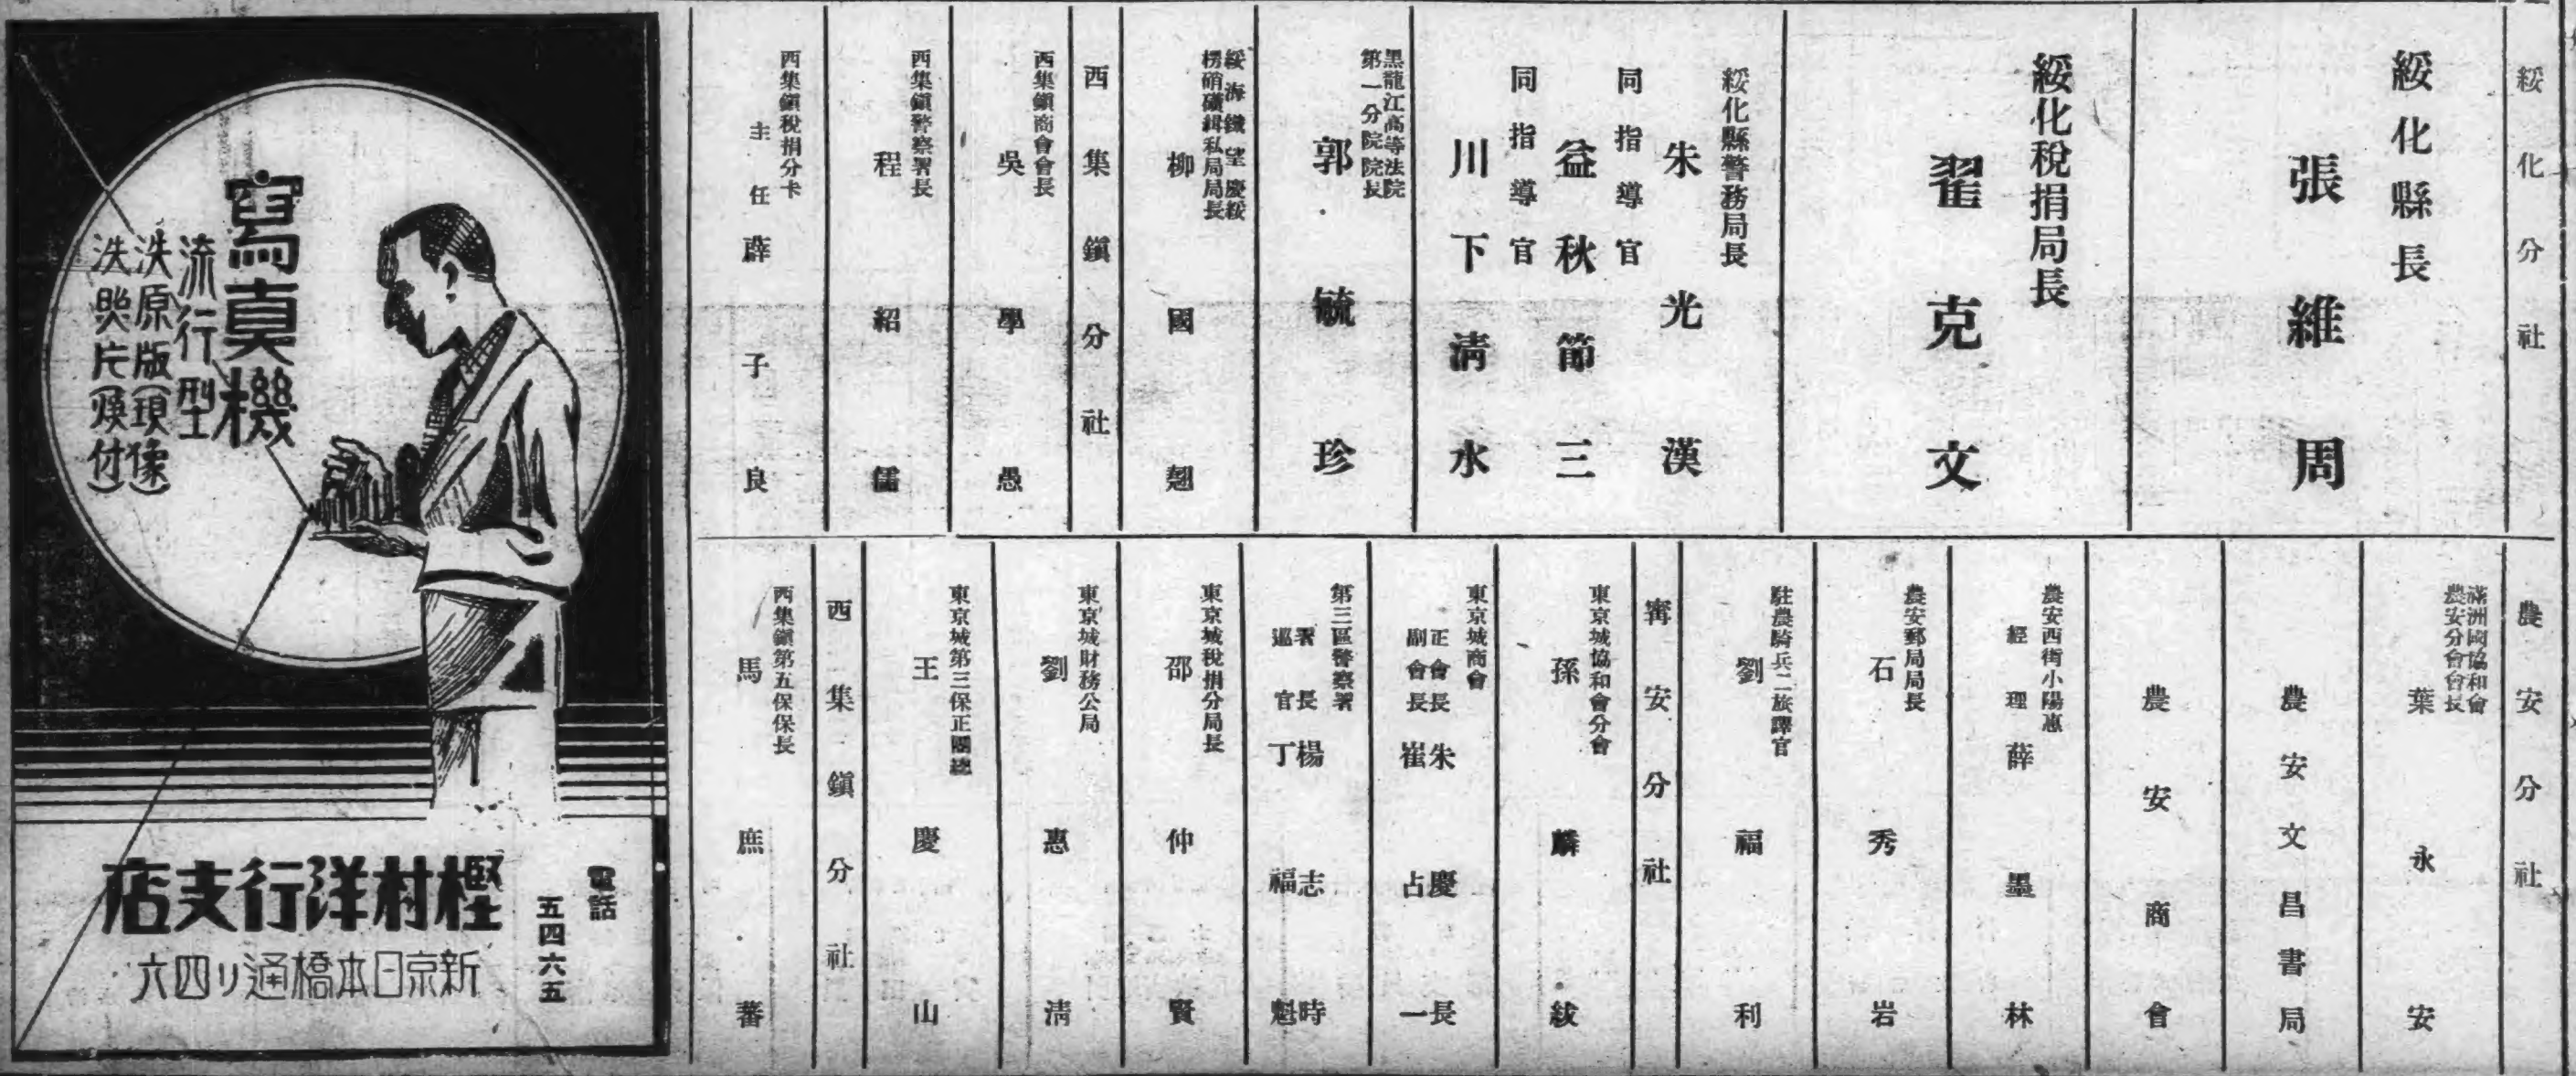 綏化分社
綏化縣長
張維周
綏化稅捐局長
翟克文
綏化縣警務局長
朱光漢
同指導官
益秋節三
同指導官
川下清水
黑龍江高等法院
第一分院院長
郭毓珍
綏海鐵望慶綏
楞硝磺緝私局局長
柳國翹
西集鎭分社
西集鎭商會會長
吳學愚
西集鎭警察署長
程紹儒
西集鎭稅捐分卡
主任 薛子良
農安分社
滿洲國協和會
農安分會會長
葉永安
農安文昌書局
農安商會
農安西街小陽惠
經理 薛墨林
農安郵局局長
石秀岩
駐農騎兵二旅譯官
劉福利
甯安分社
東京城協和會分會
孫麟紱
東京城商會
正會長 朱慶長
副會長 崔占一
第三區警察署
署長 楊志時
巡官 丁福魁
東京城稅捐分局長
邵仲賢
東京城財務公局
劉惠清
東京城第三保正團總
王慶山
西集鎭分社
西集鎭第五保保長
馬庶蕃
寫眞機
流行型
洗原版(現像)
洗照片(燒付)
電話
五四六五
樫村洋行支店
新京日本橋通リ四六